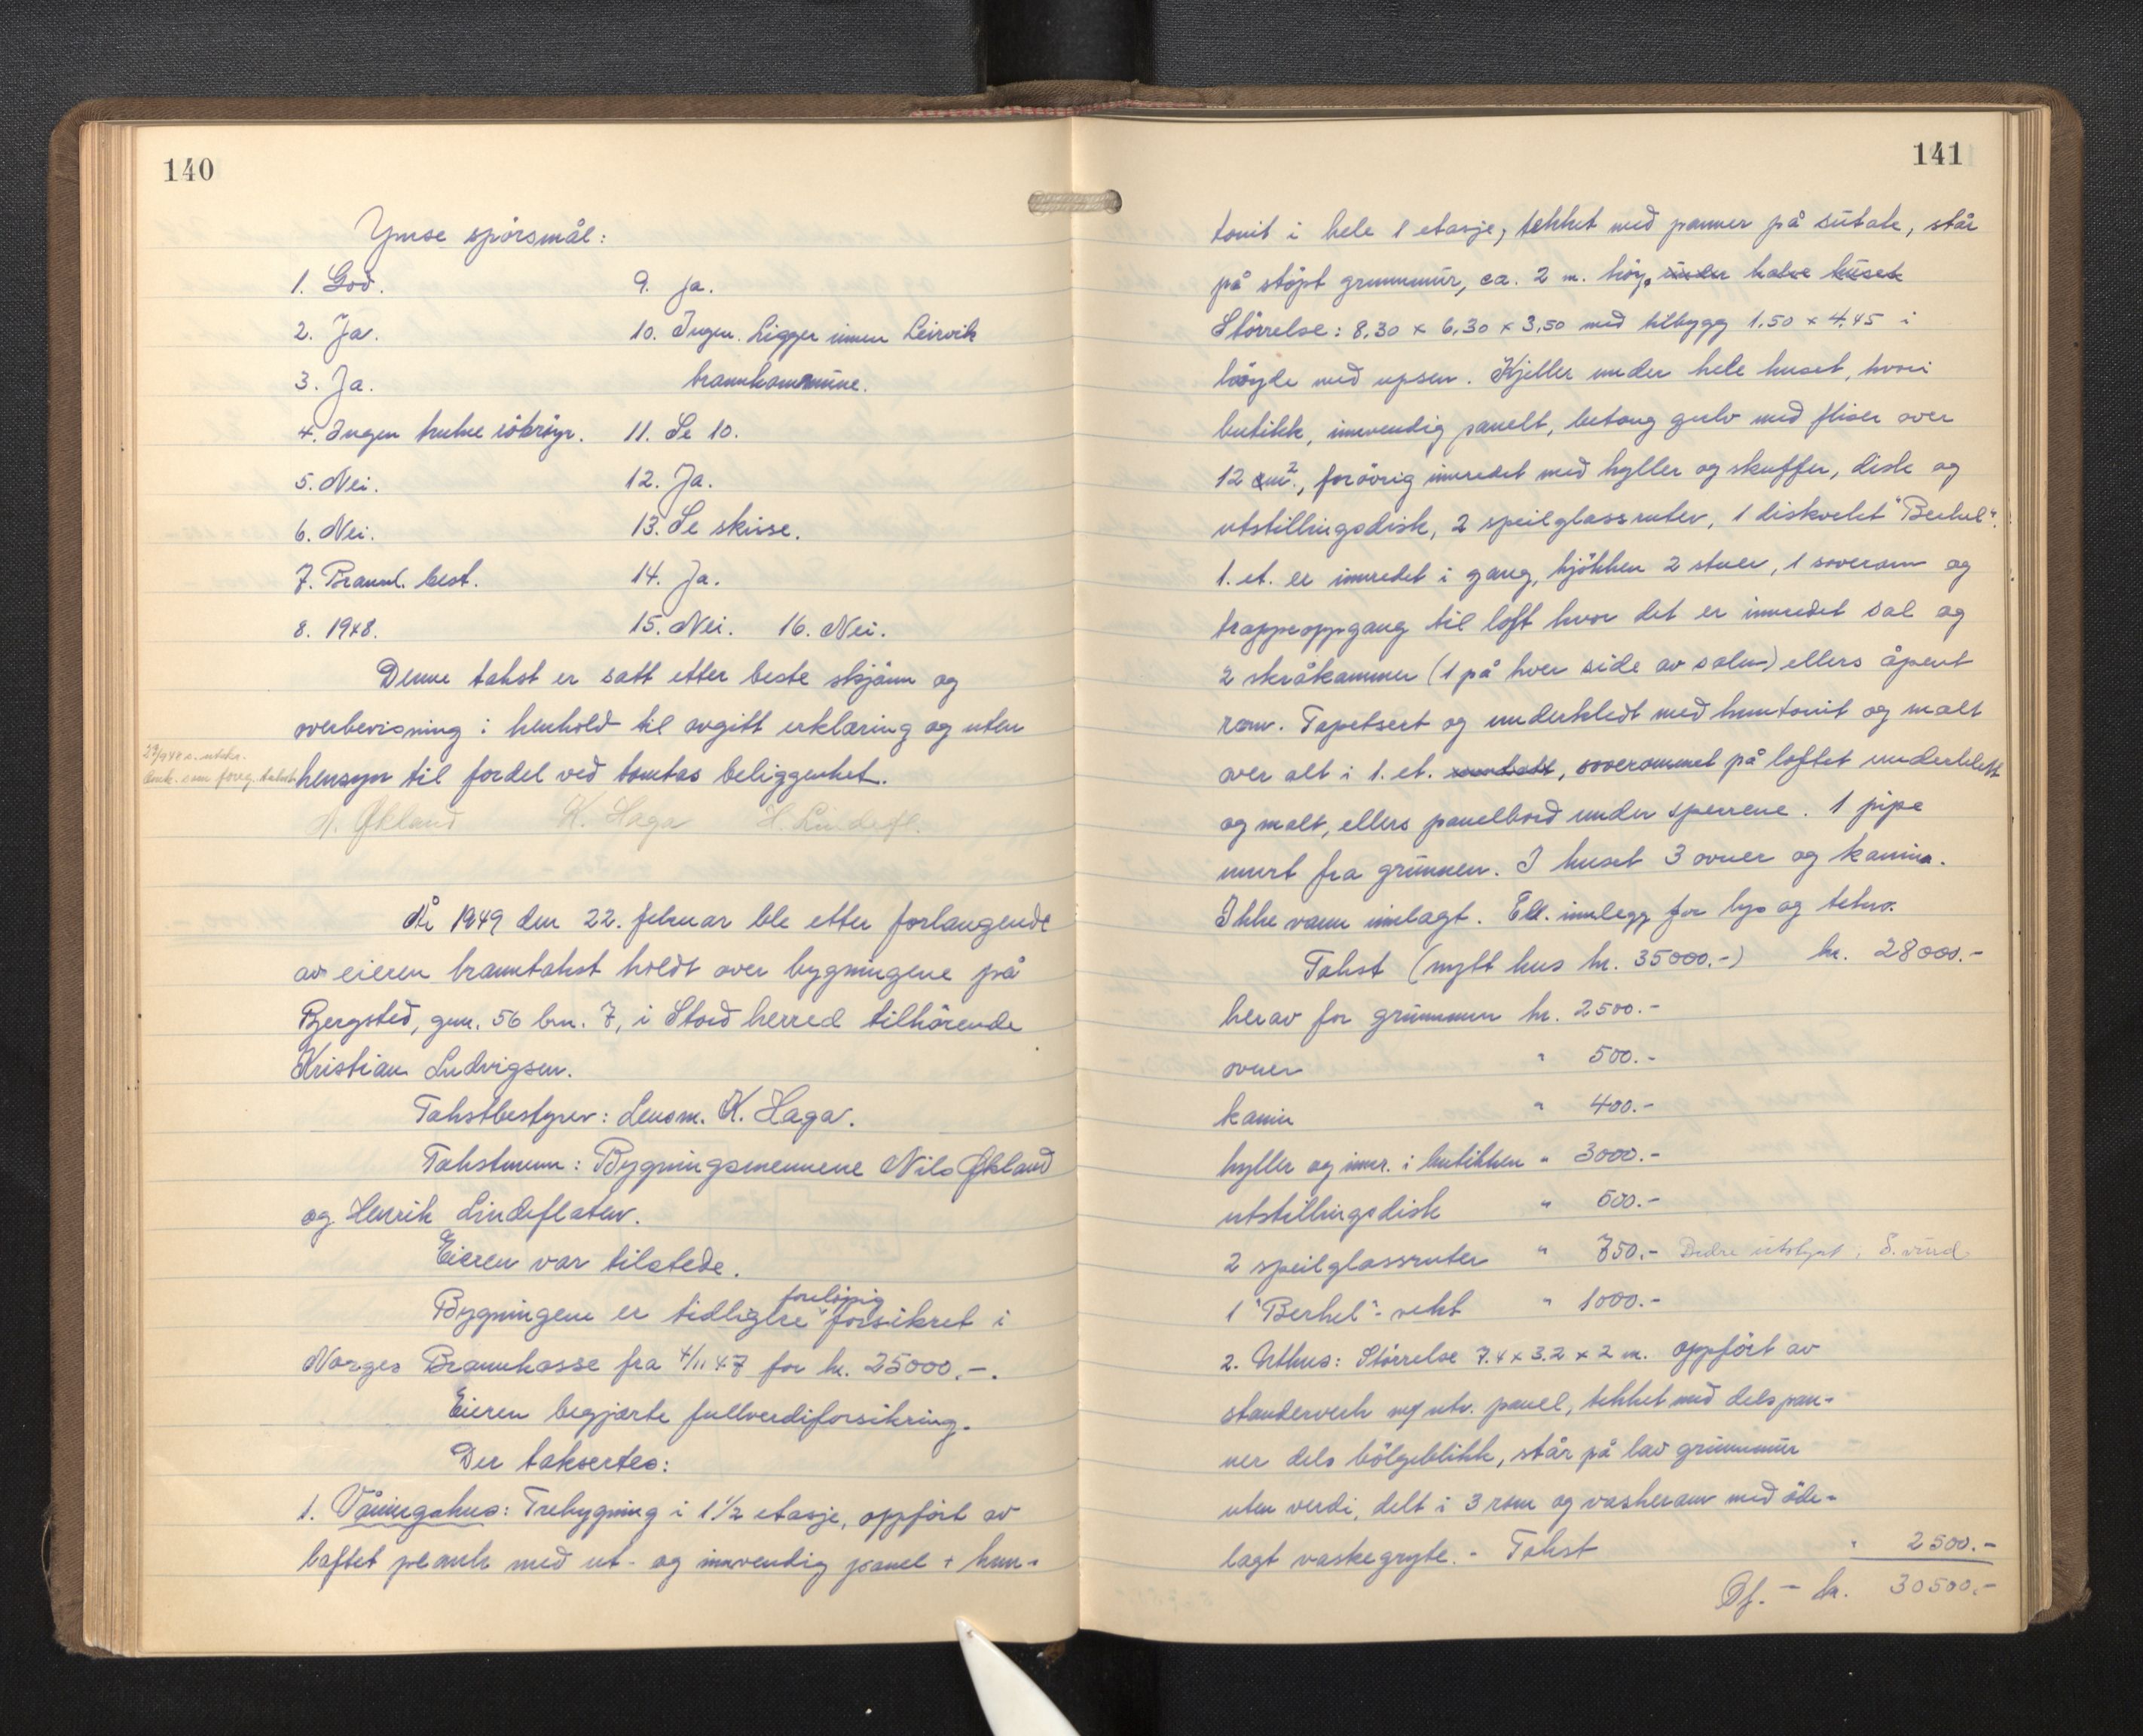 140
Ymse spörsmål:
1. God.
2. Ja.
3. Ja.
4. Ingen
5. Nei.
6. Nei.
7. Brannl. best.
8. 1948.
9. Ja.
10. Ingen. Ligger innen Leirvik
brannkommune.
11. Se 10.
12. Ja.
13. Se skisse.
14. Ja.
15. Nei. 16. Nei.
Denne takst er satt etter beste skjönn og
overbevisning i henhold til avgitt erklæring og uten
hensyn til fordel ved tomtas beliggenhet.
N. Økland K. Haga H. Lindefl.
År 1949 den 22. februar ble etter forlangende
av eieren branntakst holdt over bygningene på
Bergsted, gnr. 56 brn. 7, i Stord herred tilhörende
Kristian Ludvigsen.
Takstbestyrer: Lensm. K. Haga.
Takstmenn: Bygningsmennene Nils Økland
og Henrik Lindeflaten.
Eieren var tilstede.
Bygningene er tidligere forelöpig forsikret i
Norges Brannkasse fra 4/11 47 for kr. 25000.-.
Eieren begjærte fullverdiforsikring.
Der takseres:
1. Våningshus: Trebygning i 1 1/2 etasje, oppfört av
laftet plank med ut- og innvendig panel + hun-
141
tonit i hele 1 etasje, tekket med panner på sutak, står
på stöpt grunnmur, ca. 2 m. höy. under halve huset
Störrelse: 8,30 x 6,30 x 3,50 med tilbygg 1,50 x 4,45 i
höyde med upsen. Kjeller under hele huset, hvori
butikk, innvendig panelt, betong gulv med fliser over
12 m²., forövrig innredet med hyller og skuffer, disk og
utstillingsdisk, 2 speilglassruter, 1 diskvekt "Berkel".
1. et. er innredet i gang, kjökken 2 stuer, 1 soverom og
trappeoppgang til loft hvor det er innredet sal og
2 skråkammer (1 på hver side av salen) ellers åpent
rom. Tapetsert og underkledt med huntonit og malt
over alt i 1. et. , soverommet på loftet underkledt
og malt, ellers panelbord under sperrene. 1 pipe
murt fra grunnen. I huset 3 ovner og kamin.
Ikke vann innlagt. Ell. innlegg for lys og tekn.
Takst (nytt hus kr. 35000.-) kr. 28000.-
herav for grunnmur kr. 2500.-
ovner " 500.-
kamin " 400.-
hyller og innr. i butikken " 3000.-
utstillingsdisk " 600.-
2 speilglassruter " 750.-
1 "Berkel"-vekt " 1000.-
2. Uthus: Störrelse 7.4 x 3.2 x 2 m. oppfört av
standerverk m/ utv. panel, tekket med dels pan-
ner dels bölgeblikk, står på lav grunnmur
uten verdi, delt i 3 rom og vaskerom med öde-
lagt vaskegryte. - Takst " 2500.-
Of. - kr. 30500.-